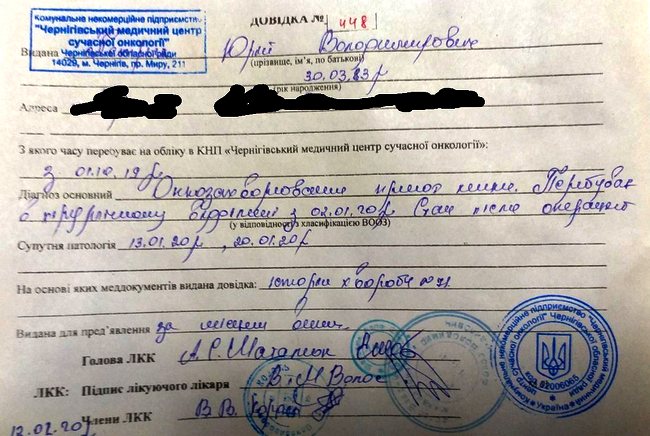 КОМУНАЛЬНЕ НЕКОМЕРЦІЙНЕ ПІДПРИЄМСТВО
"Чернігівський медичний центр
сучасної онкології"
Чернігівської обласної ради
14029, м. Чернігів, пр. Миру, 211
ДОВІДКА № 448
Видана Юрій Володимирович
(прізвище, ім'я, по батькові)
30.03.83р
(рік народження)
Адреса
З якого часу перебуває на обліку в КНП «Чернігівський медичний центр сучасної онкології»:
з 01.10.19р.
Діагноз основний Онкозахворювання. Перебував
в хірургічному відділенні з 02.01.20р Стан після операції
(у відповідності з класифікацією ВООЗ)
Супутна патологія 13.01.20р, 20.01.20р
На основі яких меддокументів видана довідка: історія хвороби №71
Видана для пред'явлення за
Голова ЛКК
ЛКК: Підпис лікуючого лікаря
Члени ЛКК
12.02.20р
Комунальне некомерційне підприємство "Чернігівський медичний центр сучасної онкології" Чернігівської обласної ради
код 02006065
Україна